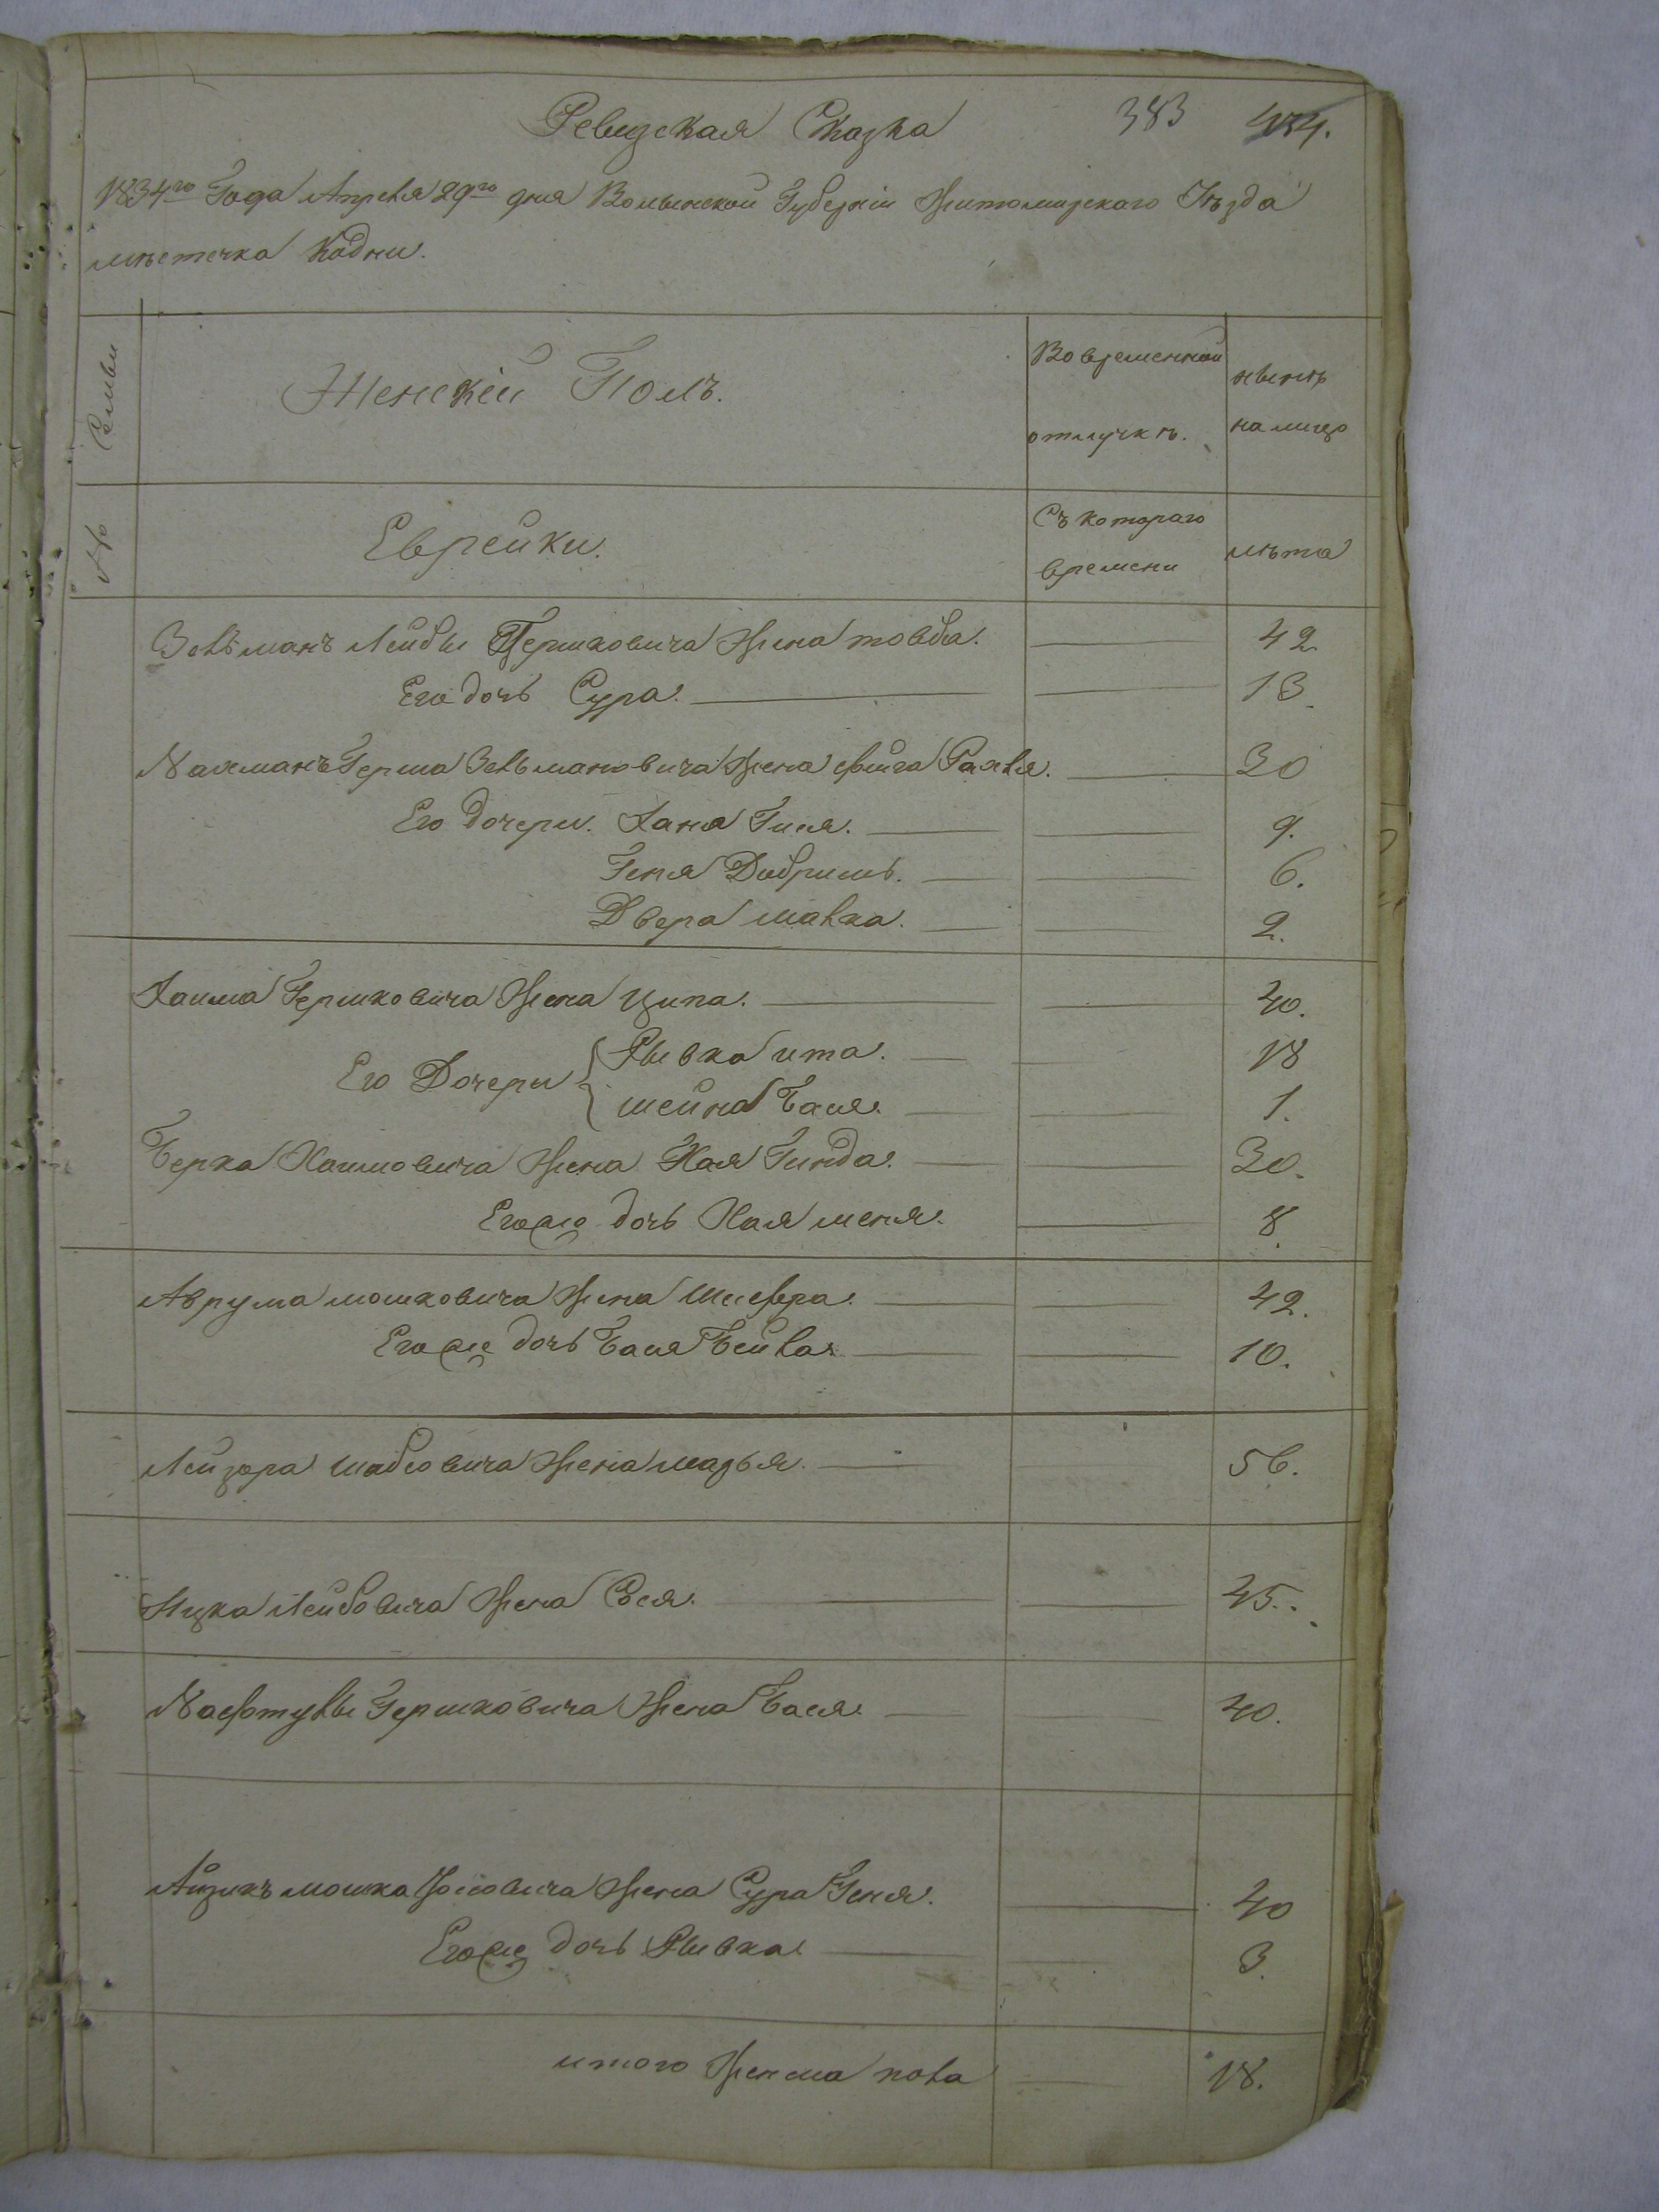 Ревизская Сказка 383 484.
1834го Года Апреля 29го дня Волынской Губернiи Житомирскаго Уѣзда
мѣстечка Кодни.
№ Семьи
Женскiй Полъ.
Во временной отлучкѣ.
нынѣ на лицо
Еврейки.
Съ котораго времени
лѣта
Зельманъ Лейбы Гершковича Жена товба. 42
Его дочь Сура. 13
Нахманъ Герша Зельмановича Жена фейга Рахля. 30
Его дочери. Хана Гися. 9.
Геня Добришь. 6.
Двера малка. 2.
Хаима Гершковича Жена Ципа. 40.
Его Дочери Рывка ита. 18
шейна Бася. 1.
Берка Хаимовича Жена Хая Гинда. 30.
Егоже дочь Хая шеня. 8.
Аврума мошковича Жена Шифра. 42.
Егоже дочь Бася Бейла. 10.
Лейзора шабсовича Жена мадья. 56.
Ицка Лейбовича Жена Сося. 45.
Нафтулы Гершковича Жена Бася. 40.
Айзикъ мошка Иосовича Жена Сура Геня. 40
Егоже дочь Рывка 3.
итого Женска пола 18.